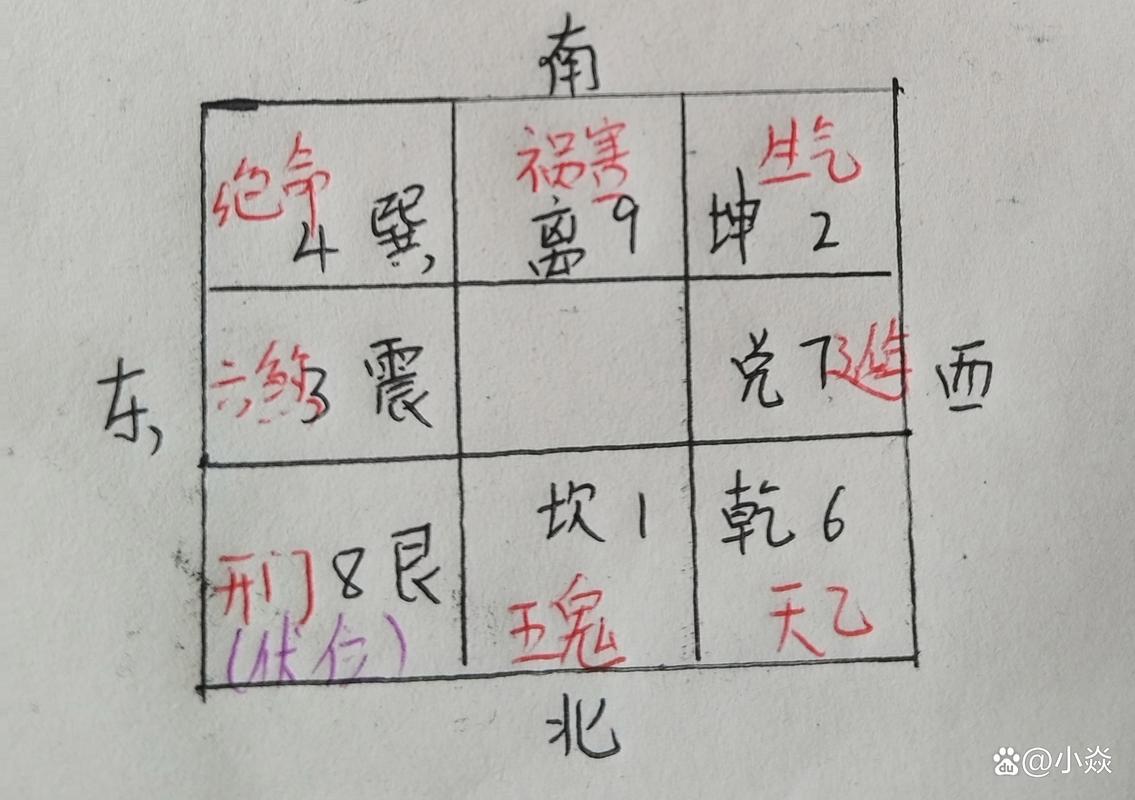 南
绝命 祸害 生气
4 巽 离 9 坤 2
东 六煞 3 震 兑 7 延年 西
开门 8 艮 坎 1 乾 6
(伏位) 五鬼 天乙
北
Bai du @小焱